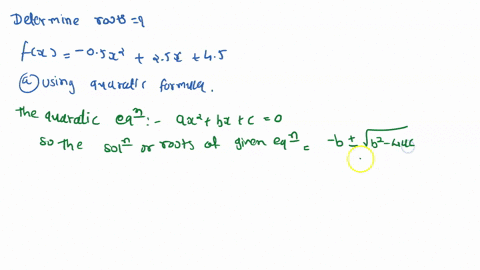 Determine roots = q
f(x) = -0.5x² + 2.5x + 4.5
(a) using quadratic formula.
The quadratic eqⁿ:- ax² + bx + c = 0
so the solⁿ or roots of given eqⁿ = -b ± √b²-4ac